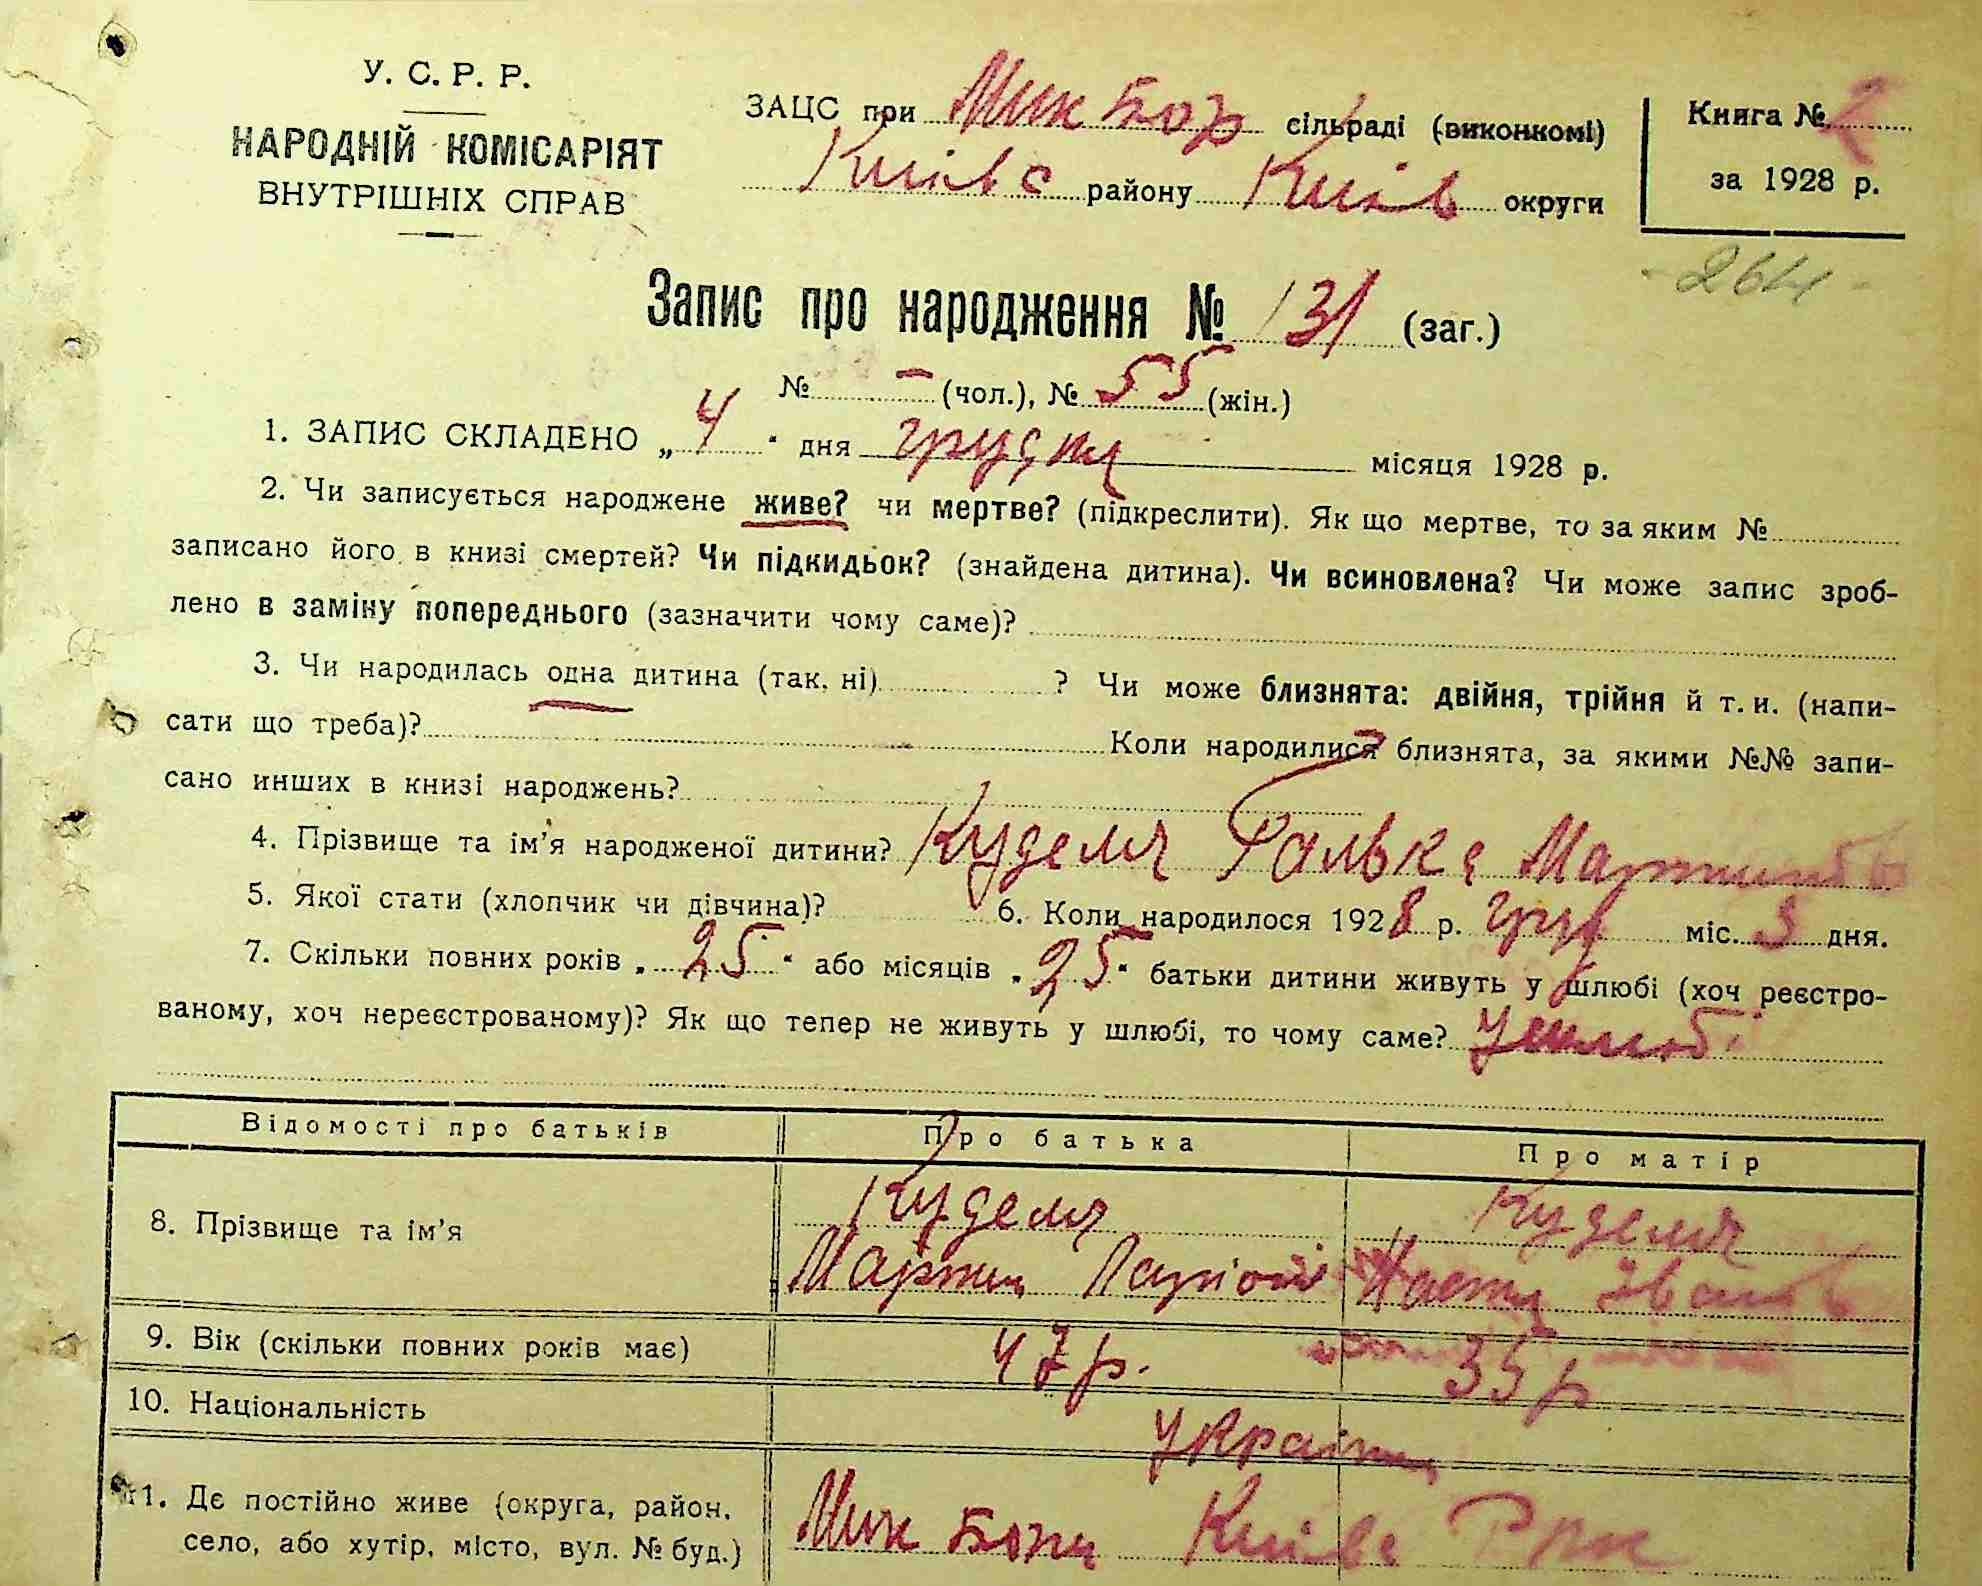 У. С. Р. Р.
НАРОДНІЙ КОМІСАРІЯТ
ВНУТРІШНІХ СПРАВ
ЗАЦС при Мик Бор сільраді (виконкомі)
Київс району Київ округи
Книга № 2
за 1928 р.
- 264 -
Запис про народження № 131 (заг.)
№ – (чол.), № 55 (жін.)
1. ЗАПИС СКЛАДЕНО „ 4 “ дня грудня місяця 1928 р.
2. Чи записується народжене живе? чи мертве? (підкреслити). Як що мертве, то за яким №
записано його в книзі смертей? Чи підкидьок? (знайдена дитина). Чи всиновлена? Чи може запис зроб-
лено в заміну попереднього (зазначити чому саме)?
3. Чи народилась одна дитина (так, ні) ? Чи може близнята: двійня, трійня й т. и. (напи-
сати що треба)? Коли народилися близнята, за якими №№ запи-
сано инших в книзі народжень?
4. Прізвище та ім’я народженої дитини? Куделя Галька Мартинов
5. Якої стати (хлопчик чи дівчина)? 6. Коли народилося 1928 р. груд міс. 3 дня.
7. Скільки повних років „ 25 “ або місяців „ 25 “ батьки дитини живуть у шлюбі (хоч реєстро-
ваному, хоч нереєстрованому)? Як що тепер не живуть у шлюбі, то чому саме? У шлюбі
Відомості про батьків Про батька Про матір
8. Прізвище та ім’я Куделя Куделя
Мартин Ларіон Настя Іванов
9. Вік (скільки повних років має) 47 р. 35 р
10. Національність Україн
11. Де постійно живе (округа, район,
село, або хутір, місто, вул. № буд.) Мик Борщ Київс Рик